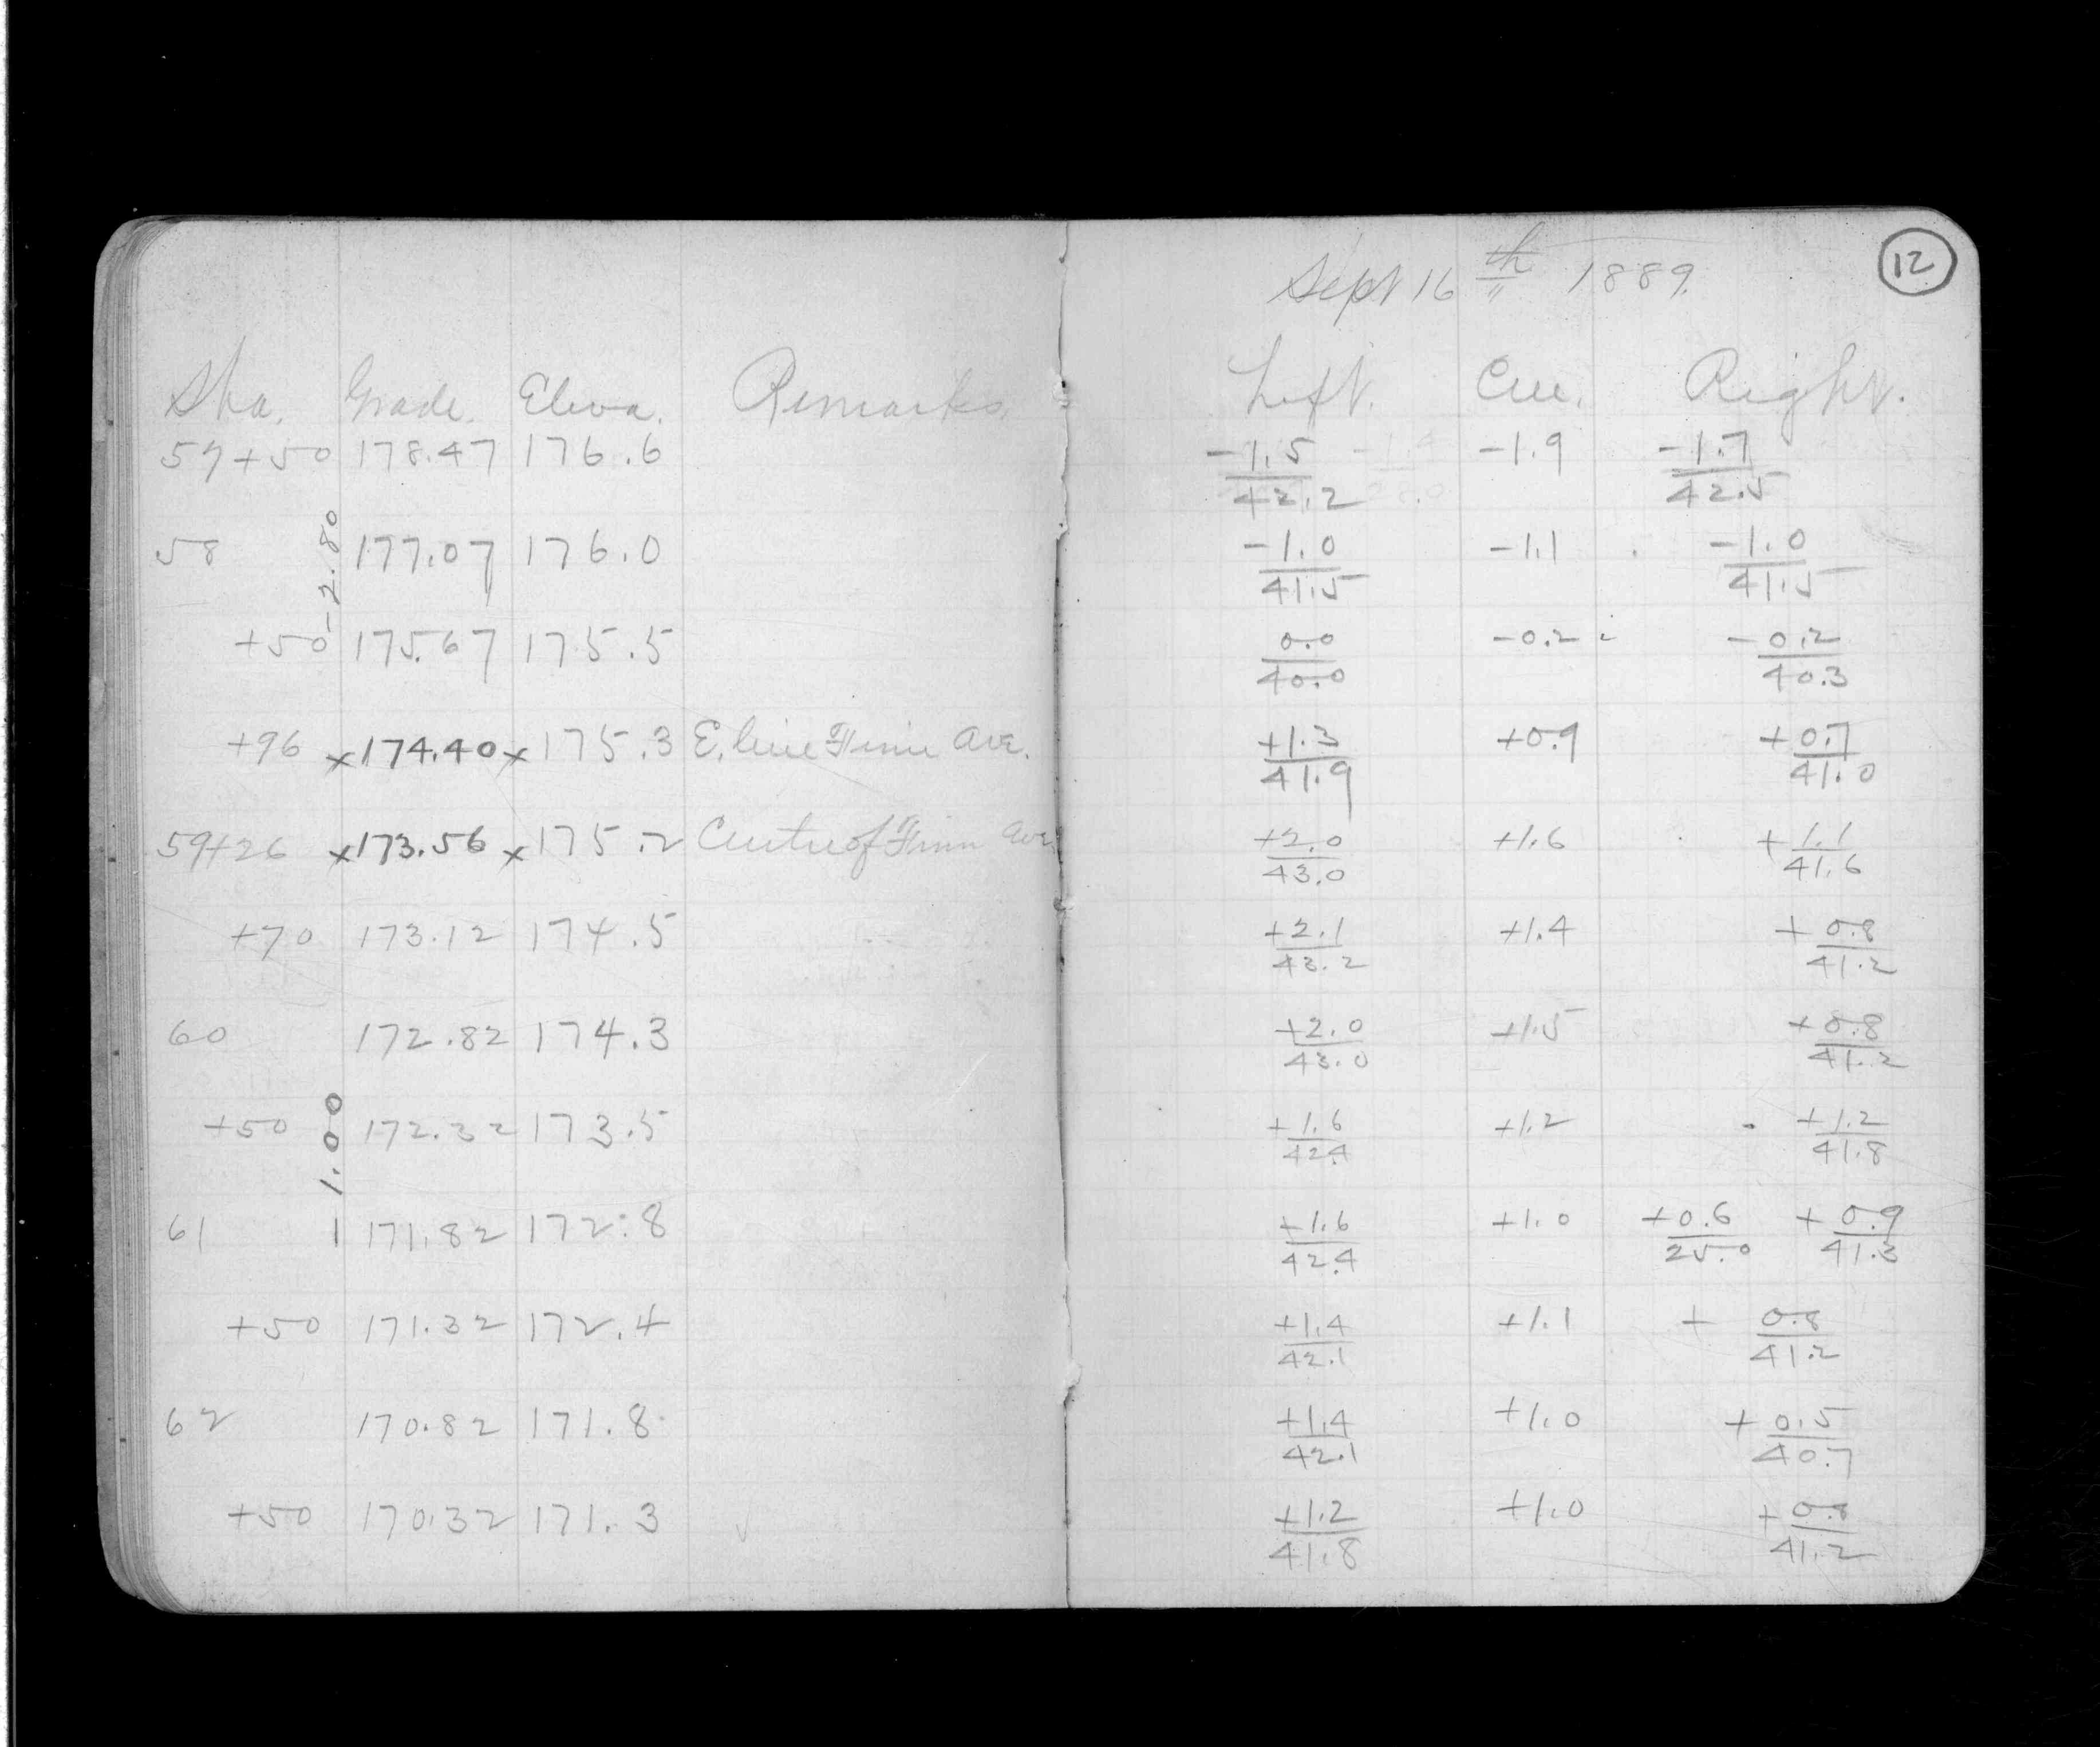 Sept 16th 1889.
12
Sta. Grade. Eleva. Remarks Left. Cen. Right.
57+50 178.47 176.6 -1.5/42.2 -1.9 -1.7/42.5
-2.80
58 177.07 176.0 -1.0/41.5 -1.1 -1.0/41.5
+50 175.67 175.5 0.0/40.0 -0.2 -0.2/40.3
+96 x174.40 x175.3 E. line Finn Ave. +1.3/41.9 +0.9 +0.7/41.0
59+26 x173.56 x175.2 Centre of Finn Ave. +2.0/43.0 +1.6 +1.1/41.6
+70 173.12 174.5 +2.1/43.2 +1.4 +0.8/41.2
60 172.82 174.3 +2.0/43.0 +1.5 +0.8/41.2
1.00
+50 172.32 173.5 +1.6/42.4 +1.2 +1.2/41.8
61 171.82 172.8 +1.6/42.4 +1.0 +0.6/25.0 +0.9/41.3
+50 171.32 172.4 +1.4/42.1 +1.1 +0.8/41.2
62 170.82 171.8 +1.4/42.1 +1.0 +0.5/40.7
+50 170.32 171.3 +1.2/41.8 +1.0 +0.8/41.2